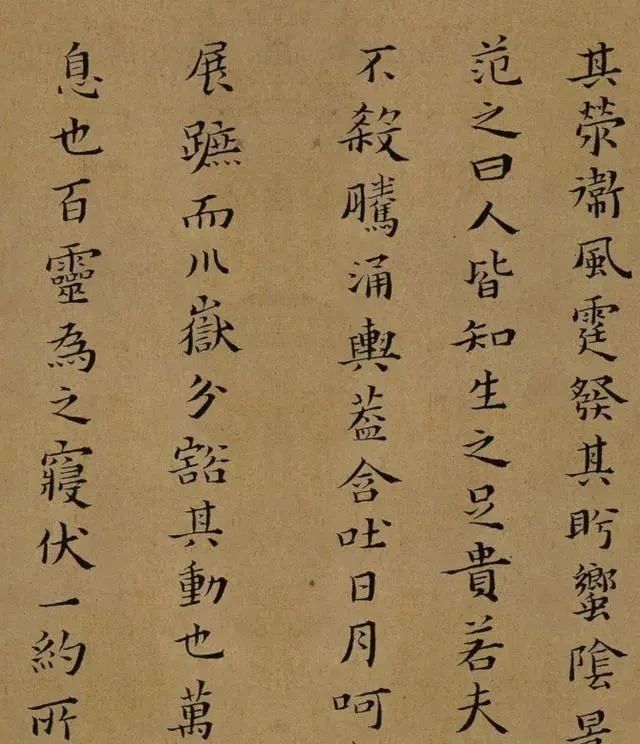 其荥衞風霆發其盻蠁陰景
范之曰人皆知生之足貴若夫
不殺騰涌輿蓋含吐日月呵
展蹠而川嶽分豁其動也萬
息也百靈為之寢伏一約所